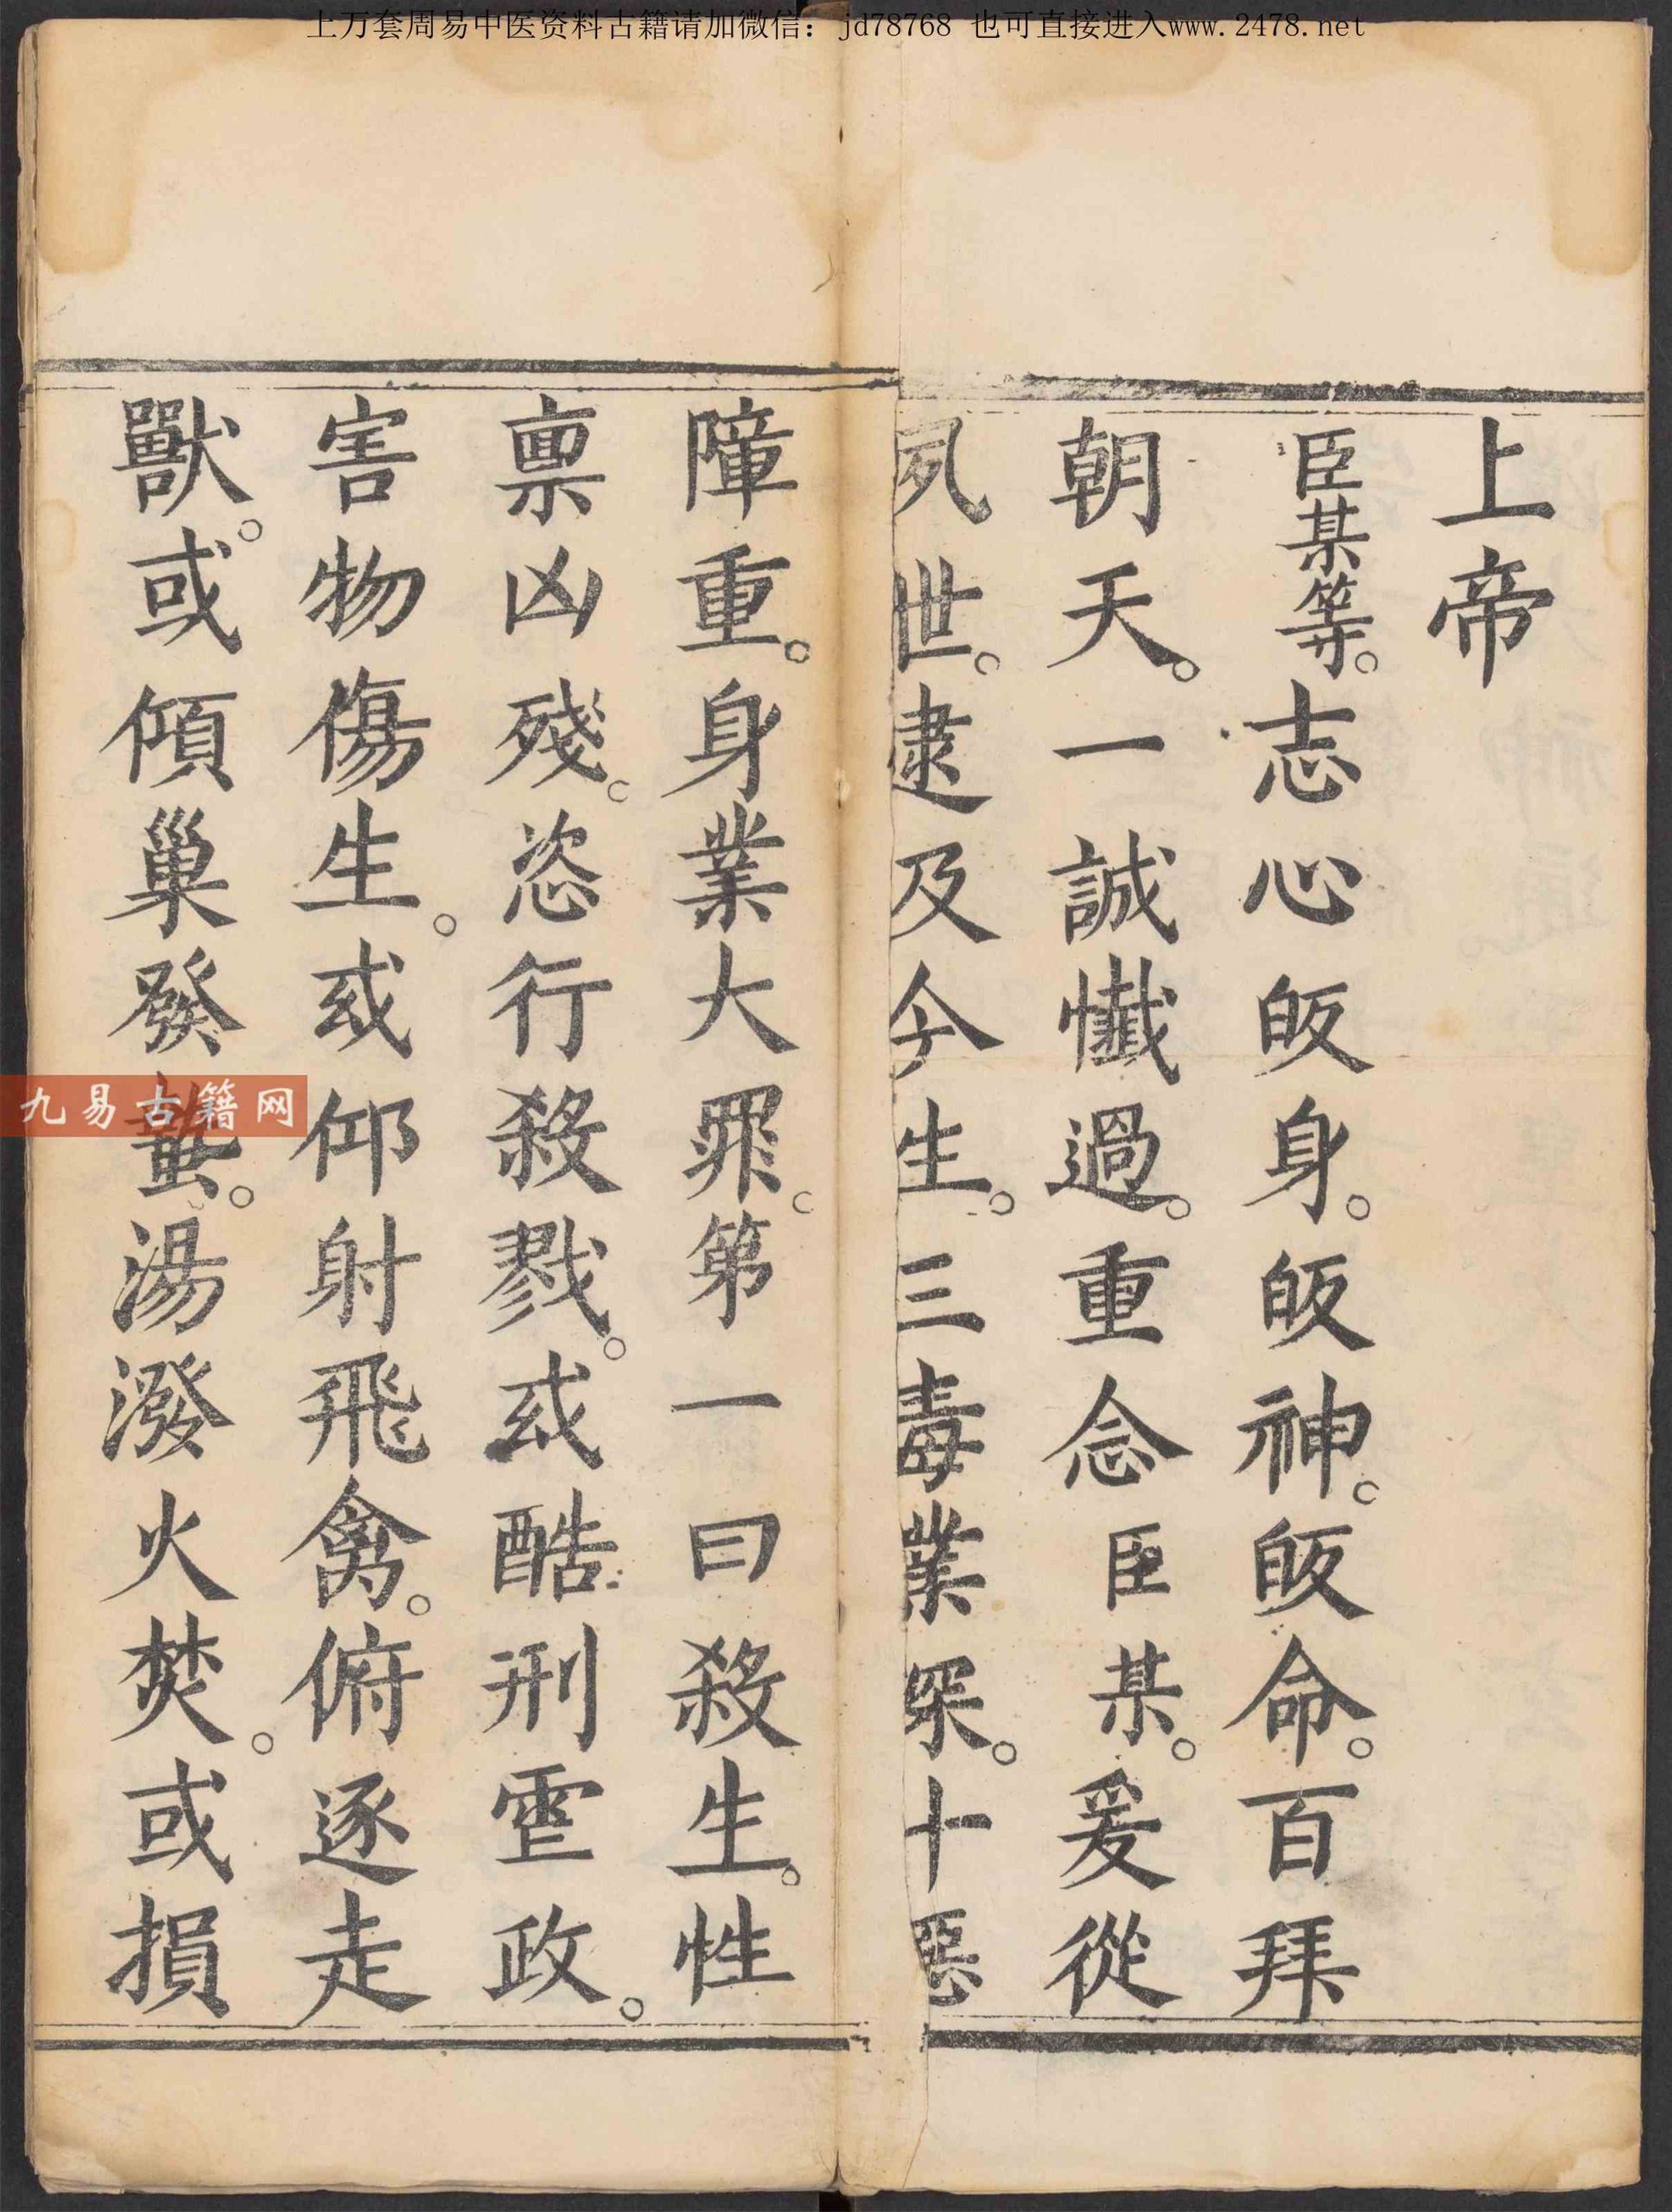 上万套周易中医资料古籍请加微信：jd78768 也可直接进入www.2478.net
上帝
臣某等。志心皈身。皈神。皈命。百拜
朝天。一誠懺過。重念臣某。爰從
夙世。逮及今生。三毒業深。十惡
障重。身業大罪。第一曰殺生。性
禀凶殘。恣行殺戮。或酷刑虐政。
害物傷生。或仰射飛禽。俯逐走
獸。或傾巢發蟄。湯潑火焚。或損
九易古籍网